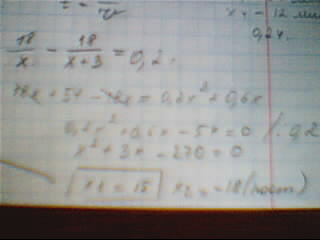 x₁ - 12 мин
0,2 ч.
18/x - 18/(x+3) = 0,2.
18x + 54 - 18x = 0,2x² + 0,6x
0,2x² + 0,6x - 54 = 0 /: 0,2
x² + 3x - 270 = 0
x₁ = 15 x₂ = -18 (пост)